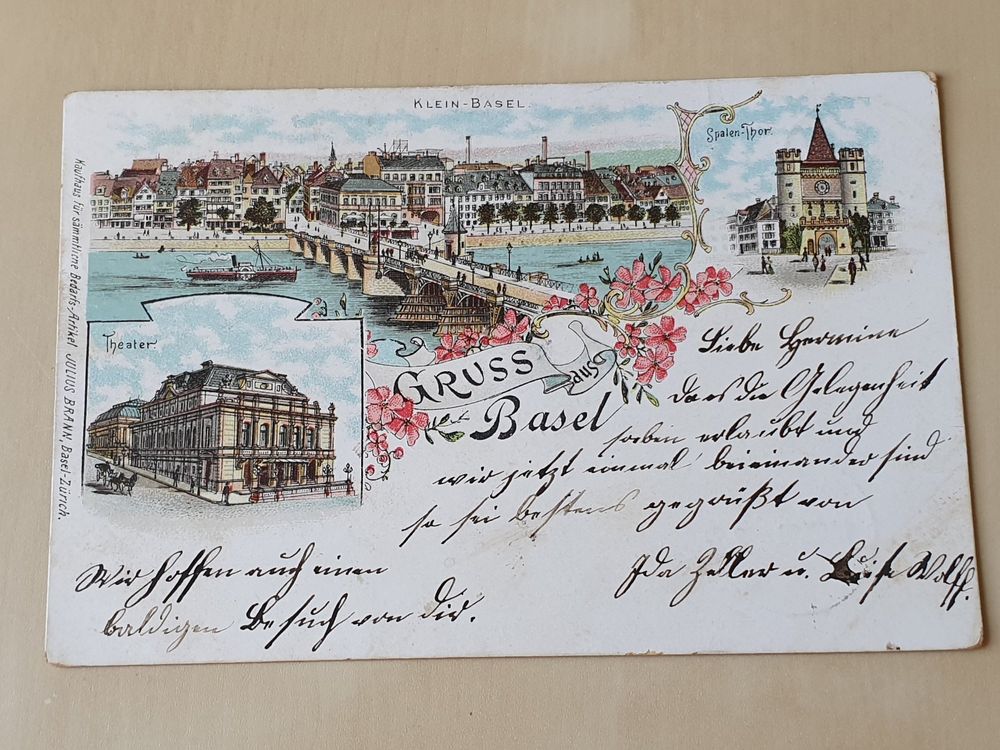 KLEIN-BASEL.
Spalen-Thor.
Kaufhaus für sämmtliche Bedarfs-Artikel JULIUS BRANN, Basel-Zürich.
Theater
GRUSS
aus
Basel
Liebe Hermine
da es die Gelegenheit
soeben erlaubt und
wir jetzt einmal beieinander sind
so sei bestens gegrüßt von
Ida Zeller u. Luise Wolff.
Wir hoffen auch einen
baldigen Besuch von dir.